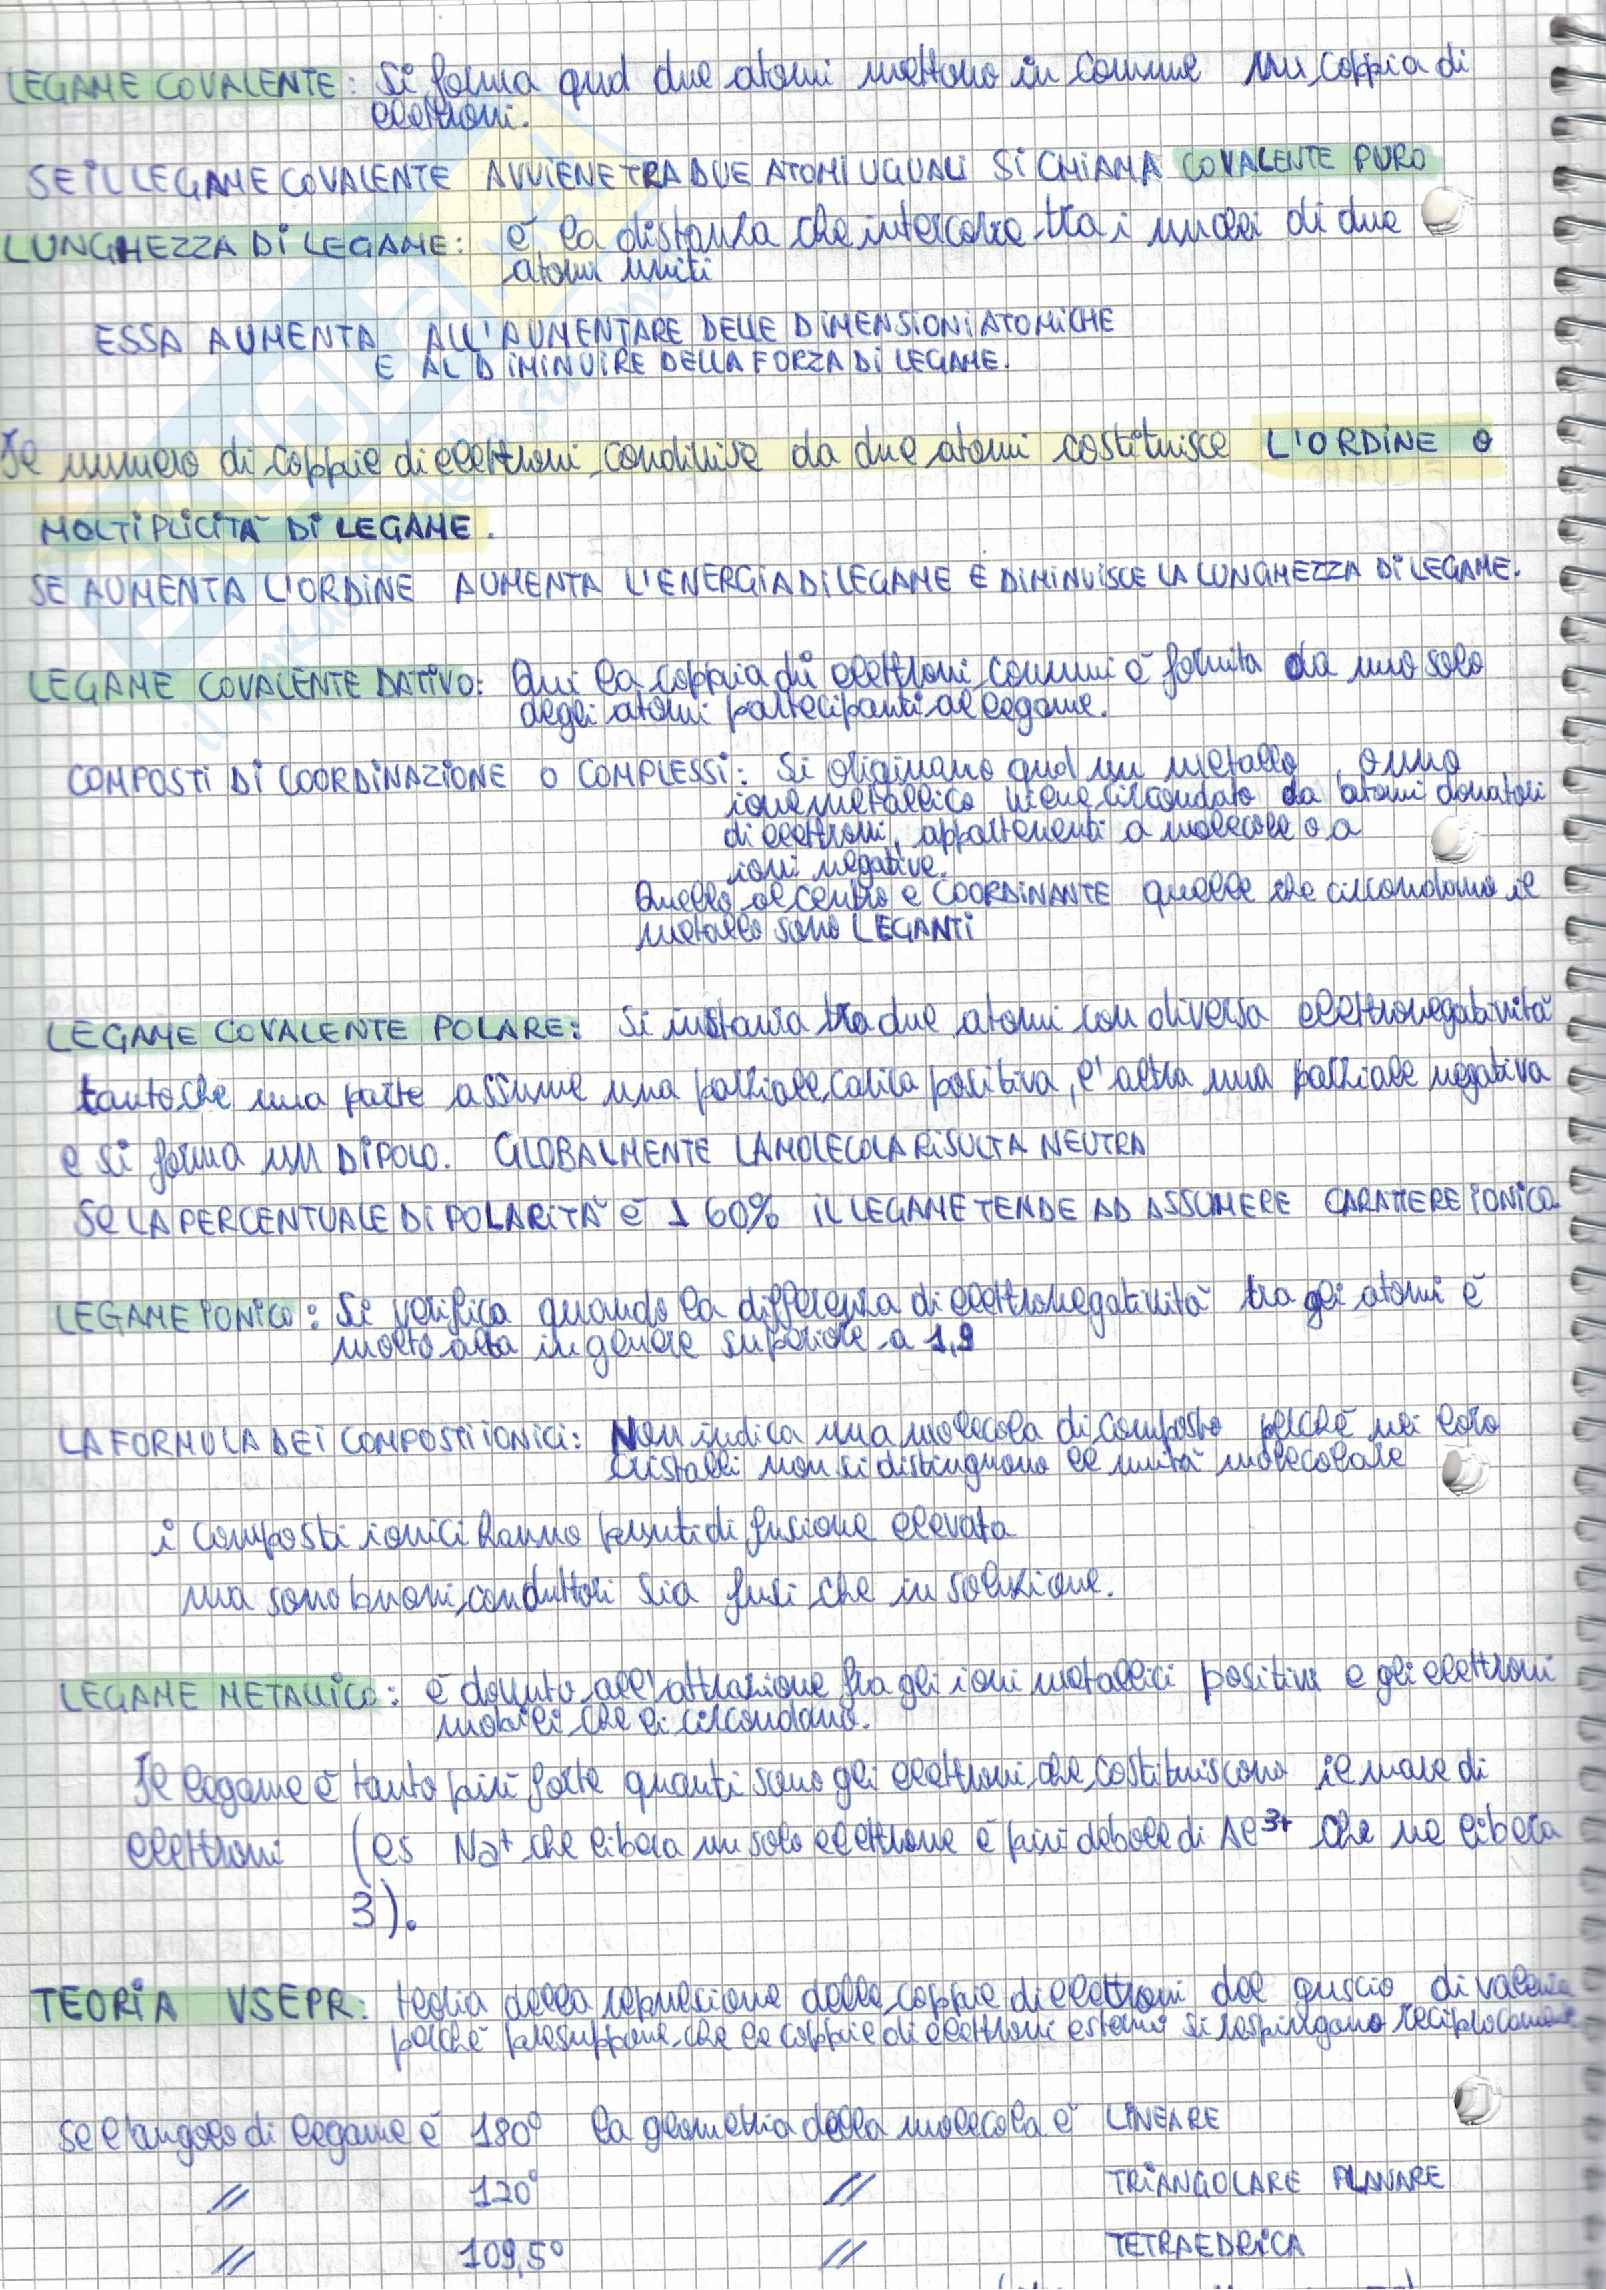 LEGAME COVALENTE: Si forma qnd due atomi mettono in comune una coppia di
elettroni.
SE IL LEGAME COVALENTE AVVIENE TRA DUE ATOMI UGUALI SI CHIAMA COVALENTE PURO
LUNGHEZZA DI LEGAME: è la distanza che intercorre tra i nuclei di due
atomi uniti
ESSA AUMENTA ALL'AUMENTARE DELLE DIMENSIONI ATOMICHE
E AL DIMINUIRE DELLA FORZA DI LEGAME.
Il numero di coppie di elettroni condivise da due atomi costituisce L'ORDINE O
MOLTIPLICITÀ DI LEGAME.
SE AUMENTA L'ORDINE AUMENTA L'ENERGIA DI LEGAME E DIMINUISCE LA LUNGHEZZA DI LEGAME.
LEGAME COVALENTE DATIVO: Qui la coppia di elettroni comuni è fornita da uno solo
degli atomi partecipanti al legame.
COMPOSTI DI COORDINAZIONE O COMPLESSI: Si originano qnd un metallo, o uno
ione metallico viene circondato da atomi donatori
di elettroni, appartenenti a molecole o a
ioni negative.
Quello al centro e COORDINANTE quelle che circondano il
metallo sono LEGANTI
LEGAME COVALENTE POLARE: Si instaura tra due atomi con diversa elettronegatività
tanto che una parte assume una parziale carica positiva, l'altra una parziale negativa
e si forma un DIPOLO. GLOBALMENTE LA MOLECOLA RISULTA NEUTRA
Se LA PERCENTUALE DI POLARITÀ È 60% IL LEGAME TENDE AD ASSUMERE CARATTERE IONICO
LEGAME IONICO: Si verifica quando la differenza di elettronegatività tra gli atomi è
molto alta in genere superiore a 1,9
LA FORMULA DEI COMPOSTI IONICI: Non indica una molecola di composto perchè nei loro
cristalli non si distinguono le unità molecolare
i composti ionici hanno punti di fusione elevata
ma sono buoni conduttori sia fusi che in soluzione.
LEGAME METALLICO: è dovuto all'attrazione fra gli ioni metallici positivi e gli elettroni
mobili che li circondano.
Il legame è tanto più forte quanti sono gli elettroni che costituiscono il mare di
elettroni (es Na+ che libera un solo elettrone è più debole di Al3+ che ne libera
3).
TEORIA VSEPR: teoria della repulsione delle coppie di elettroni del guscio di valenza
perchè presuppone che le coppie di elettroni esterni si respingono reciprocamente
Se l'angolo di legame è 180° la geometria della molecola è LINEARE
// 120° // TRIANGOLARE PLANARE
// 109,5° // TETRAEDRICA